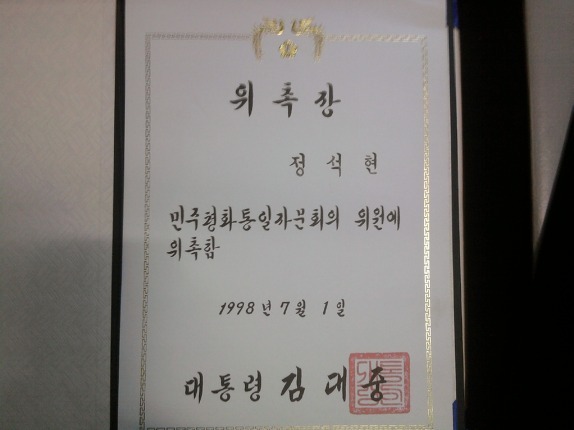 위촉장
정석현
민주평화통일자문회의 위원에
위촉함
1998년 7월 1일
대통령 김대중